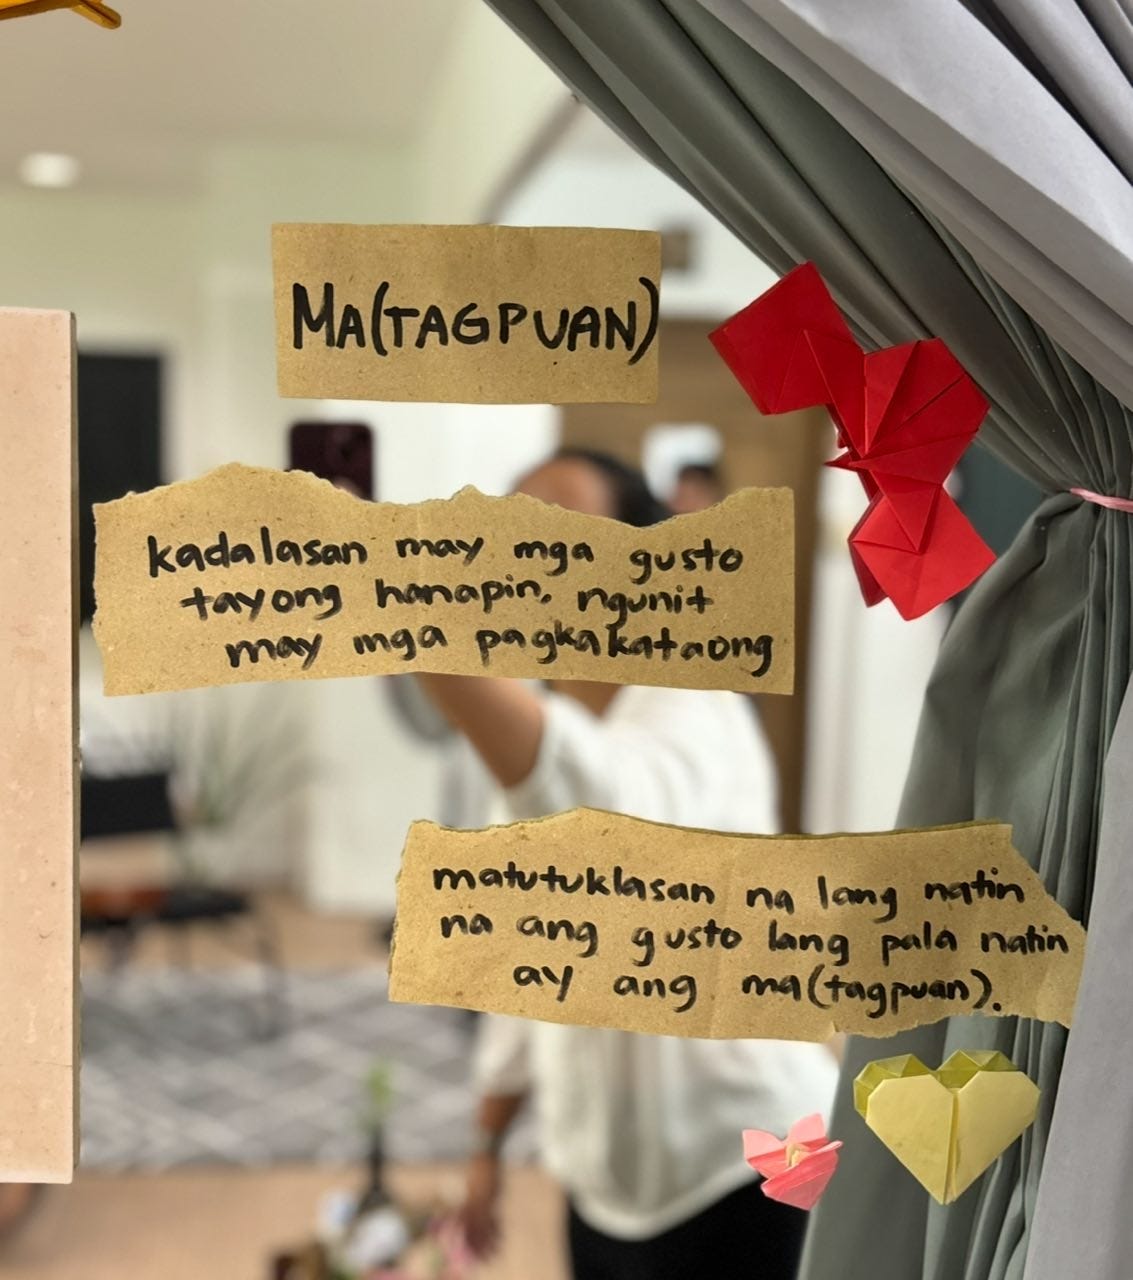 MA(TAGPUAN)
kadalasan may mga gusto
tayong hanapin, ngunit
may mga pagkakataong
matutuklasan na lang natin
na ang gusto lang pala natin
ay ang ma(tagpuan).